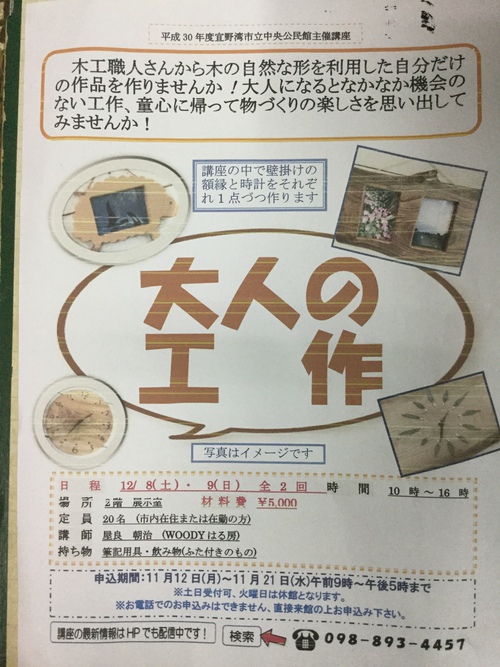 平成30年度宜野湾市立中央公民館主催講座
木工職人さんから木の自然な形を利用した自分だけ
の作品を作りませんか！大人になるとなかなか機会の
ない工作、童心に帰って物づくりの楽しさを思い出して
みませんか！
講座の中で壁掛けの
額縁と時計をそれぞ
れ１点づつ作ります
大人の
工作
写真はイメージです
日程 12/8(土)・9(日) 全2回 時間 10時～16時
場所 2階 展示室 材料費 ¥5,000
定員 20名 (市内在住または在勤の方)
講師 屋良 朝治 (WOODYはる房)
持ち物 筆記用具・飲み物(ふた付きのもの)
申込期間:11月12日(月)～11月21日(水)午前9時～午後5時まで
※土日受付可、火曜日は休館となります。
※お電話でのお申込みはできません、直接来館の上お申込み下さい。
講座の最新情報はHPでも配信中です！ 検索 098-893-4457